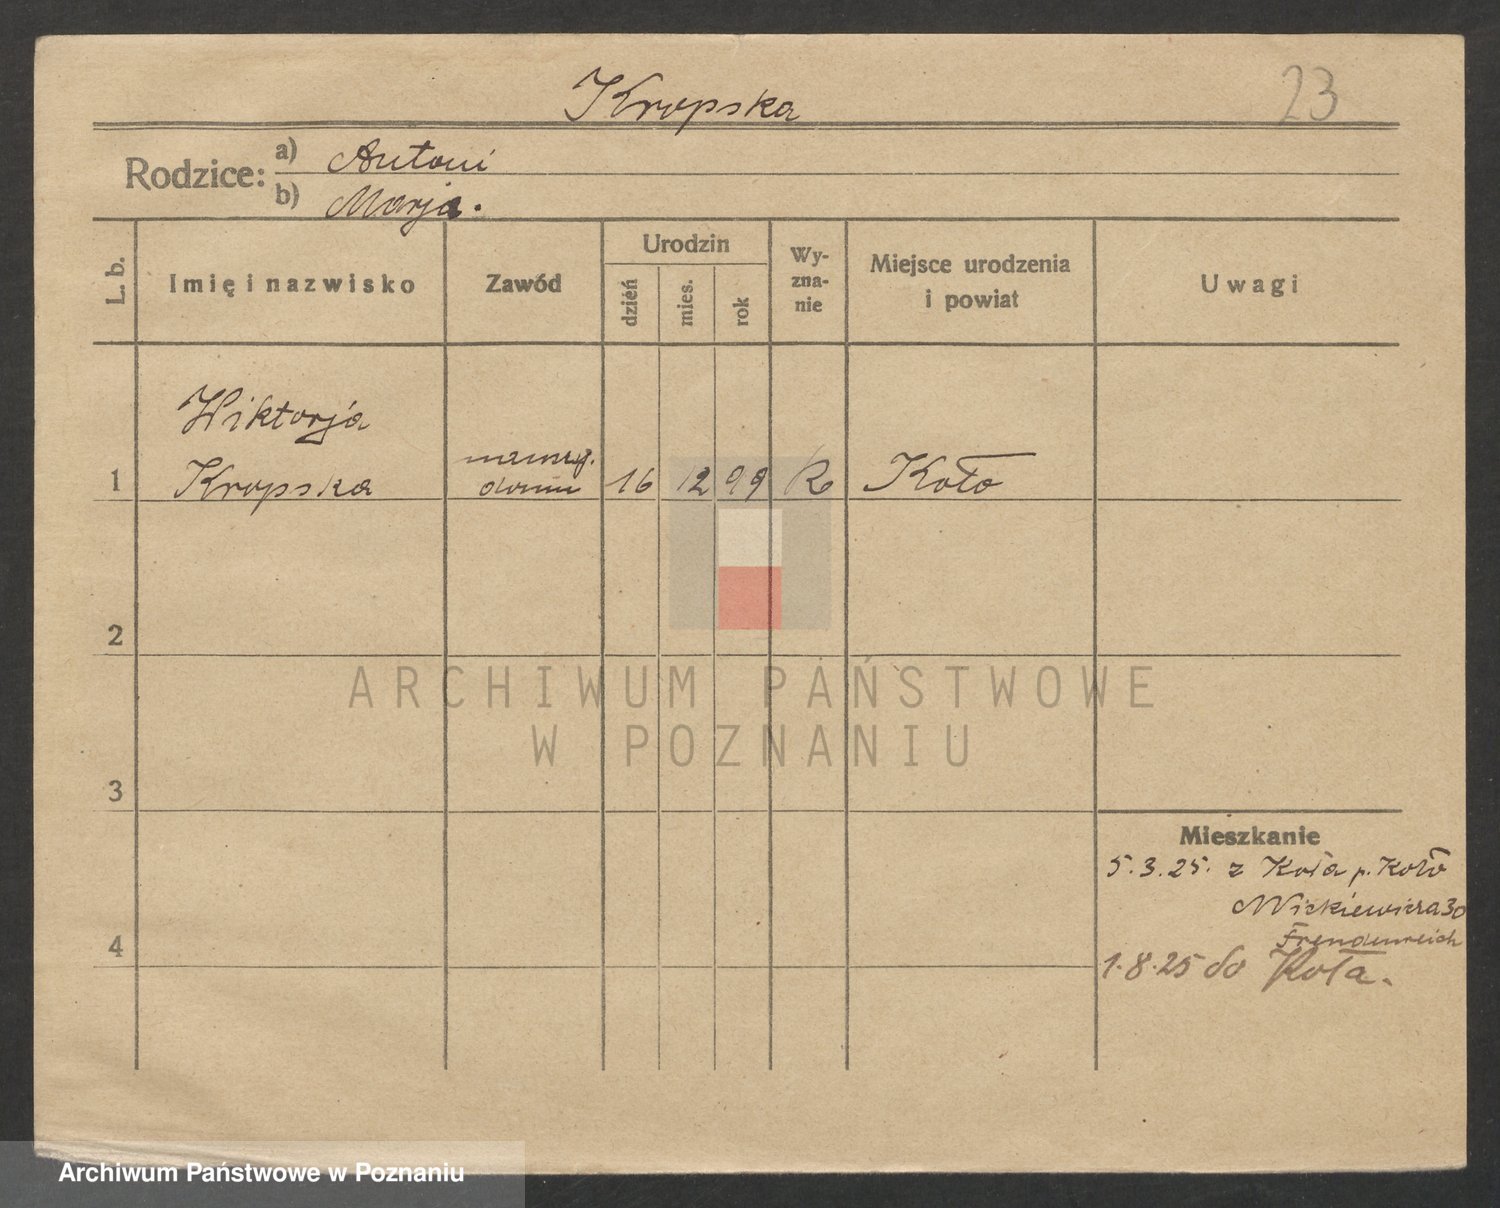 Kropska
23
Rodzice: a) Antoni
b) Marja.
L. b.
Imię i nazwisko
Zawód
Urodzin
dzień
mies.
rok
Wy-
zna-
nie
Miejsce urodzenia
i powiat
Uwagi
Wiktorja
1 Kropska domu 16 12 99 R Koło
2
3
4
Mieszkanie
5.3.25. z Koła p. Koło
Mickiewicza 30
Freudenreich
1.8.25 do Koła.
ARCHIWUM PAŃSTWOWE
W POZNANIU
Archiwum Państwowe w Poznaniu